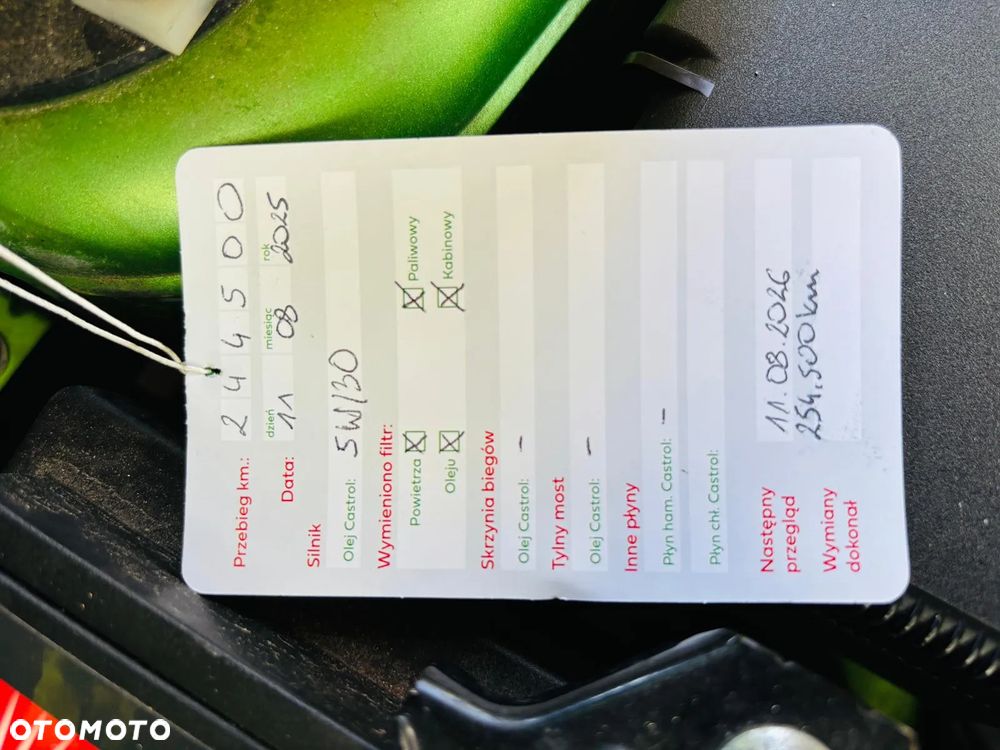 Przebieg km.: 2 4 4 5 0 0
dzień miesiąc rok
Data: 11 08 2025
Silnik
Olej Castrol: 5W/30
Wymieniono filtr:
Powietrza ☒ ☒ Paliwowy
Oleju ☒ ☒ Kabinowy
Skrzynia biegów
Olej Castrol: –
Tylny most
Olej Castrol: –
Inne płyny
Płyn ham. Castrol: –
Płyn chł. Castrol:
Następny 11.08.2026
przegląd 254.500 km
Wymiany
dokonał
OTOMOTO